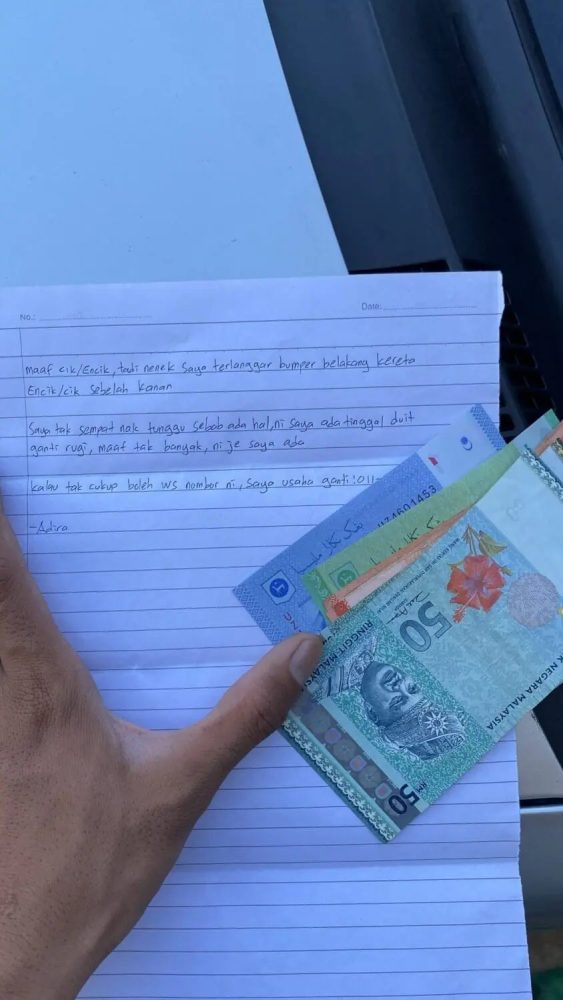 No.:
Date:
Maaf cik/Encik, tadi nenek saya terlanggar bumper belakang kereta
Encik/cik sebelah kanan
Saya tak sempat nak tunggu sebab ada hal, ni saya ada tinggal duit
ganti rugi, maaf tak banyak, ni je saya ada
kalau tak cukup boleh ws nombor ni, saya usaha ganti : 011-
-Adira
1453
50
RINGGIT
K NEGARA MALAYSIA
RM
50